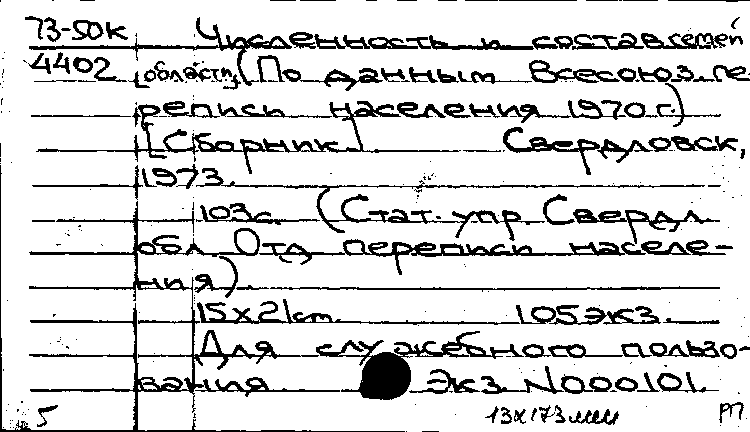 73-50к Численность и состав семей
4402 [области] (По данным Всесоюз. пе
реписи населения 1970 г.)
[Сборник]. Свердловск,
1973.
103 с. (Стат. упр. Свердл.
обл. Отд переписи населе-
ния).
15х21 cm. 105 экз.
Для служебного пользо-
вания. Экз. N000101.
5 13х173 мм РП